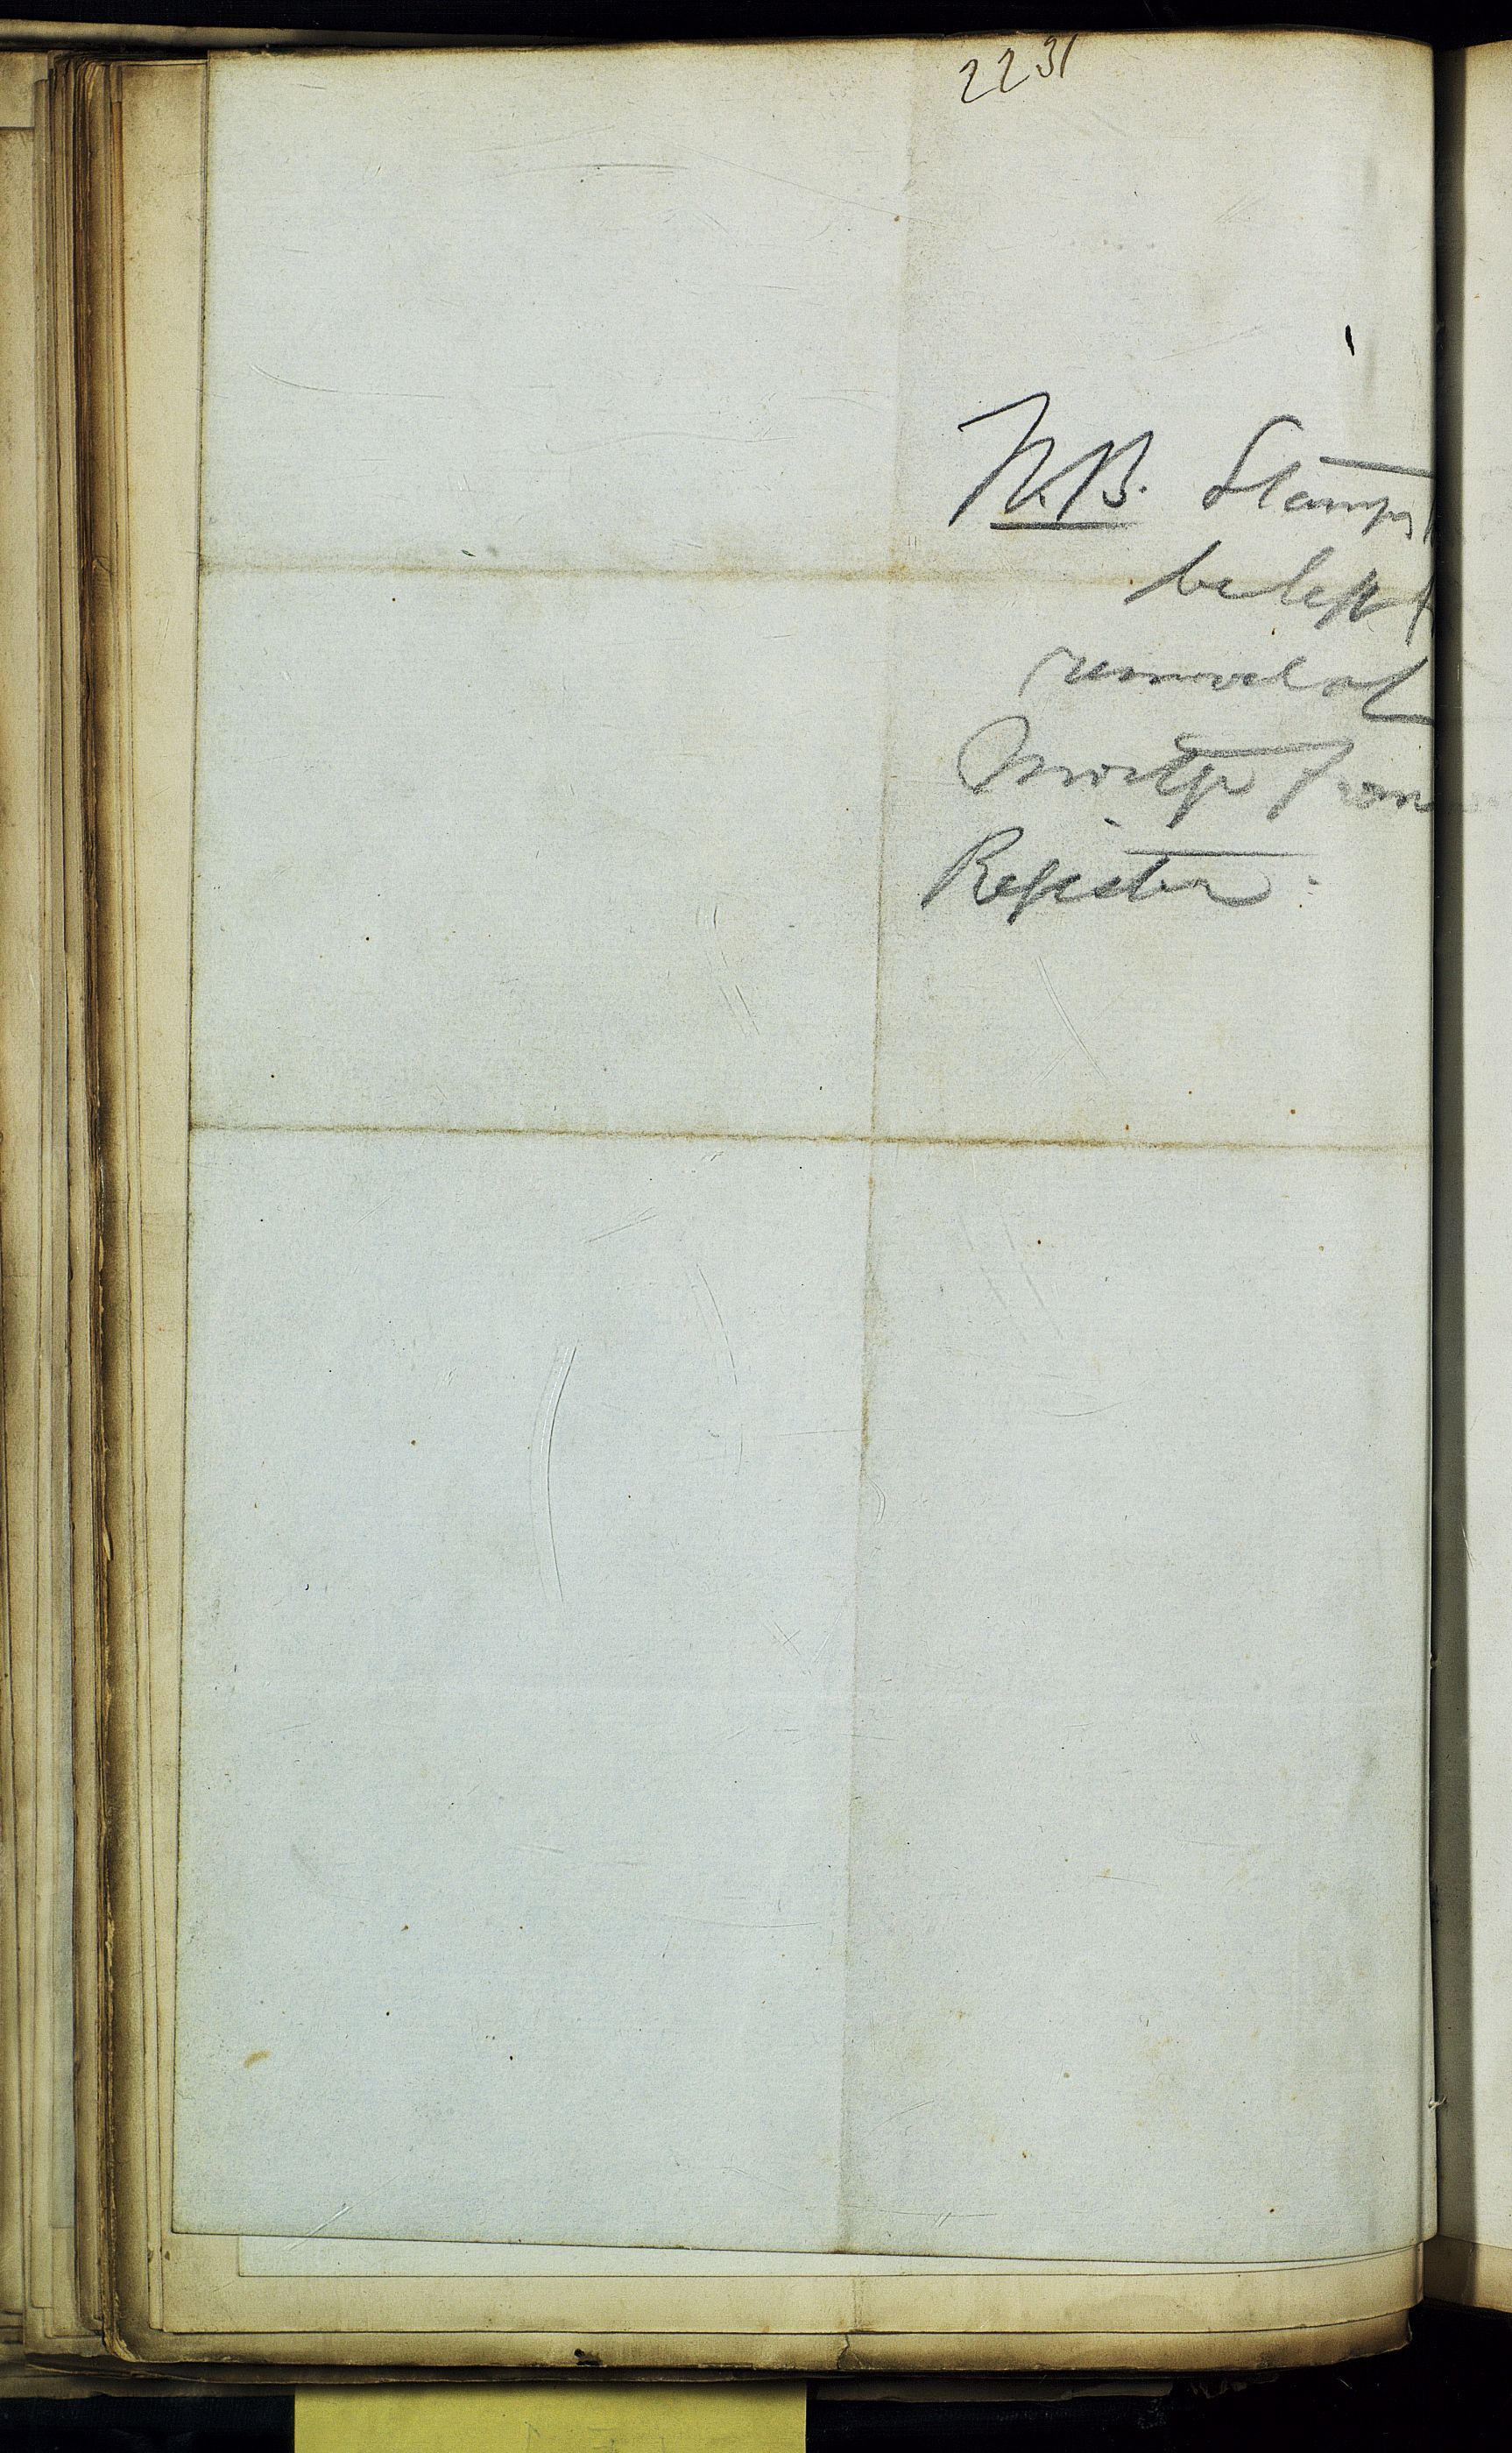 2231
N.B. Stamps
be left
removal of
Mortge from
Register